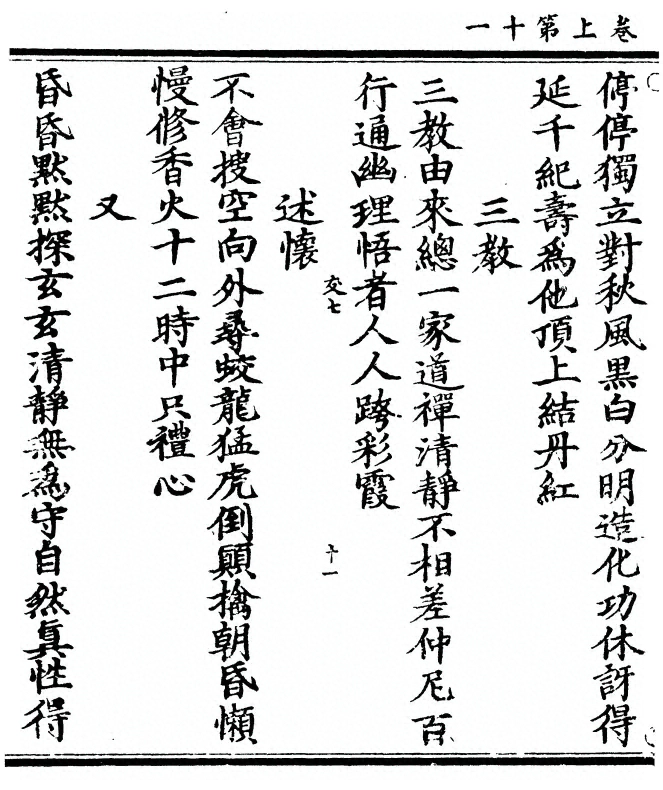 卷上第十一
停停獨立對秋風黑白分明造化功休訝得
延千紀壽爲他頂上結丹紅
三教
三教由來總一家道禪清靜不相差仲尼百
行通幽理悟者人人跨彩霞
交七
十一
述懷
不會搜空向外尋蛟龍猛虎倒顚擒朝昏懶
慢修香火十二時中只禮心
又
昏昏默默探玄玄清靜無爲守自然真性得